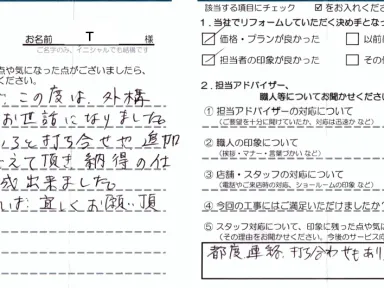 お名前 T 様
ご名字のみ、イニシャルでも結構です
点や気になった点がございましたら、
ください。
この度は、外構
お世話になりました。
ろと打ち合せや追加
えて頂き納得の仕
成出来ました。
は宜しくお願い頂
該当する項目にチェック ☑をお入れくださ
1. 当社でリフォームしていただく決め手となっ
☑ 価格・プランが良かった □ 以前
☑ 担当者の印象が良かった □ その他
2. 担当アドバイザー、
職人等についてお聞かせください
① 担当アドバイザーの対応について
(ご要望を十分に聞けていたか、対応は迅速か など)
② 職人の印象について
(挨拶・マナー・言葉づかい など)
③ 店舗・スタッフの対応について
(電話やご来店時の対応、ショールームの印象 など)
④ 今回の工事にはご満足いただけましたか
⑤ スタッフ対応について、印象に残った点や気に
(その理由をお聞かせください。今後のサービス向
都度連絡、打ち合わせもあり